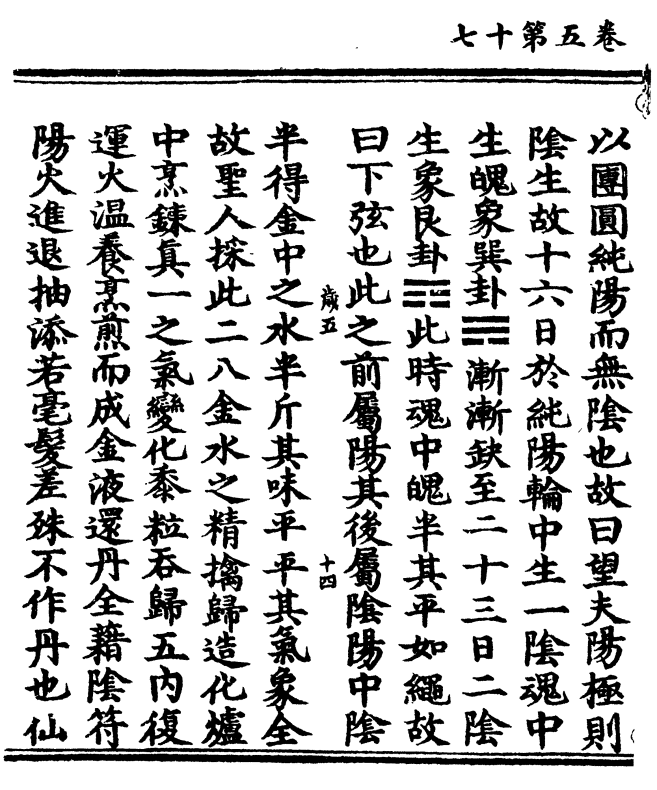 卷五第十七
以團圓純陽而無陰也故曰望夫陽極則
陰生故十六日於純陽輪中生一陰魂中
生魄象巽卦☴漸漸缺至二十三日二陰
生象艮卦☶此時魂中魄半其平如繩故
曰下弦也此之前屬陽其後屬陰陽中陰
歲五
十四
半得金中之水半斤其味平平其氣象全
故聖人採此二八金水之精擒歸造化爐
中烹鍊真一之氣變化黍粒吞歸五內復
運火溫養烹煎而成金液還丹全藉陰符
陽火進退抽添若毫髮差殊不作丹也仙